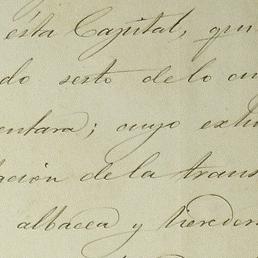 ésta Capital, que
do sesto de lo cu
entara; cuyo exhi
lación de la trans
albacea y heredor